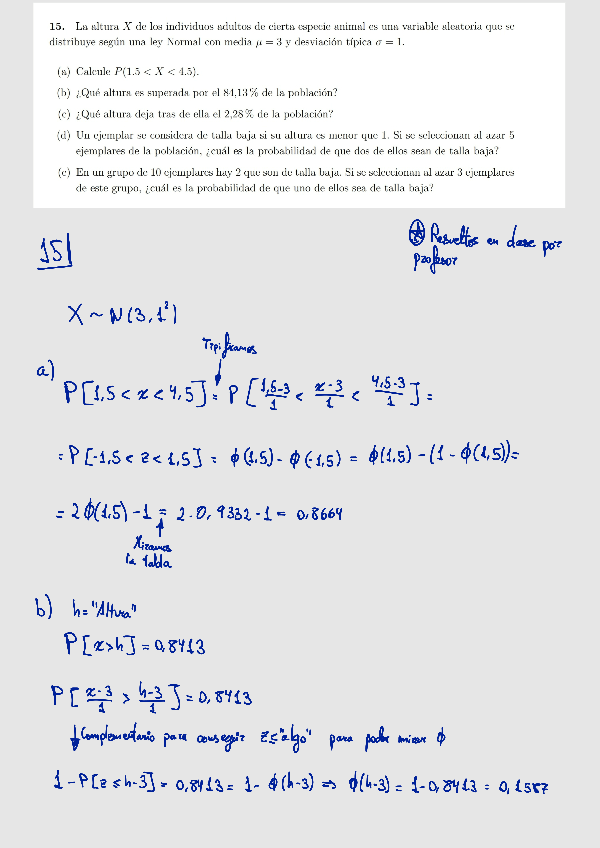 15. La altura X de los individuos adultos de cierta especie animal es una variable aleatoria que se
distribuye según una ley Normal con media μ = 3 y desviación típica σ = 1.
(a) Calcule P(1.5 < X < 4.5).
(b) ¿Qué altura es superada por el 84,13 % de la población?
(c) ¿Qué altura deja tras de ella el 2,28 % de la población?
(d) Un ejemplar se considera de talla baja si su altura es menor que 1. Si se seleccionan al azar 5
ejemplares de la población, ¿cuál es la probabilidad de que dos de ellos sean de talla baja?
(e) En un grupo de 10 ejemplares hay 2 que son de talla baja. Si se seleccionan al azar 3 ejemplares
de este grupo, ¿cuál es la probabilidad de que uno de ellos sea de talla baja?
15|
Resueltos en clase por
profesor
X ~ N(3, 1²)
Tipificamos
a)
P[1,5 < x < 4,5] = P[(1,5-3)/1 < (x-3)/1 < (4,5-3)/1] =
= P[-1,5 < z < 1,5] = φ(1,5) - φ(-1,5) = φ(1.5) - (1 - φ(1,5)) =
= 2φ(1.5) - 1 = 2·0,9332 - 1 = 0,8664
Miramos
la tabla
b) h = "Altura"
P[x>h] = 0,8413
P[(x-3)/1 > (h-3)/1] = 0,8413
↓ Complementario para conseguir z ≤ "algo" para poder mirar φ
1 - P[z ≤ h-3] = 0,8413 = 1 - φ(h-3) ⇒ φ(h-3) = 1-0,8413 = 0,1587